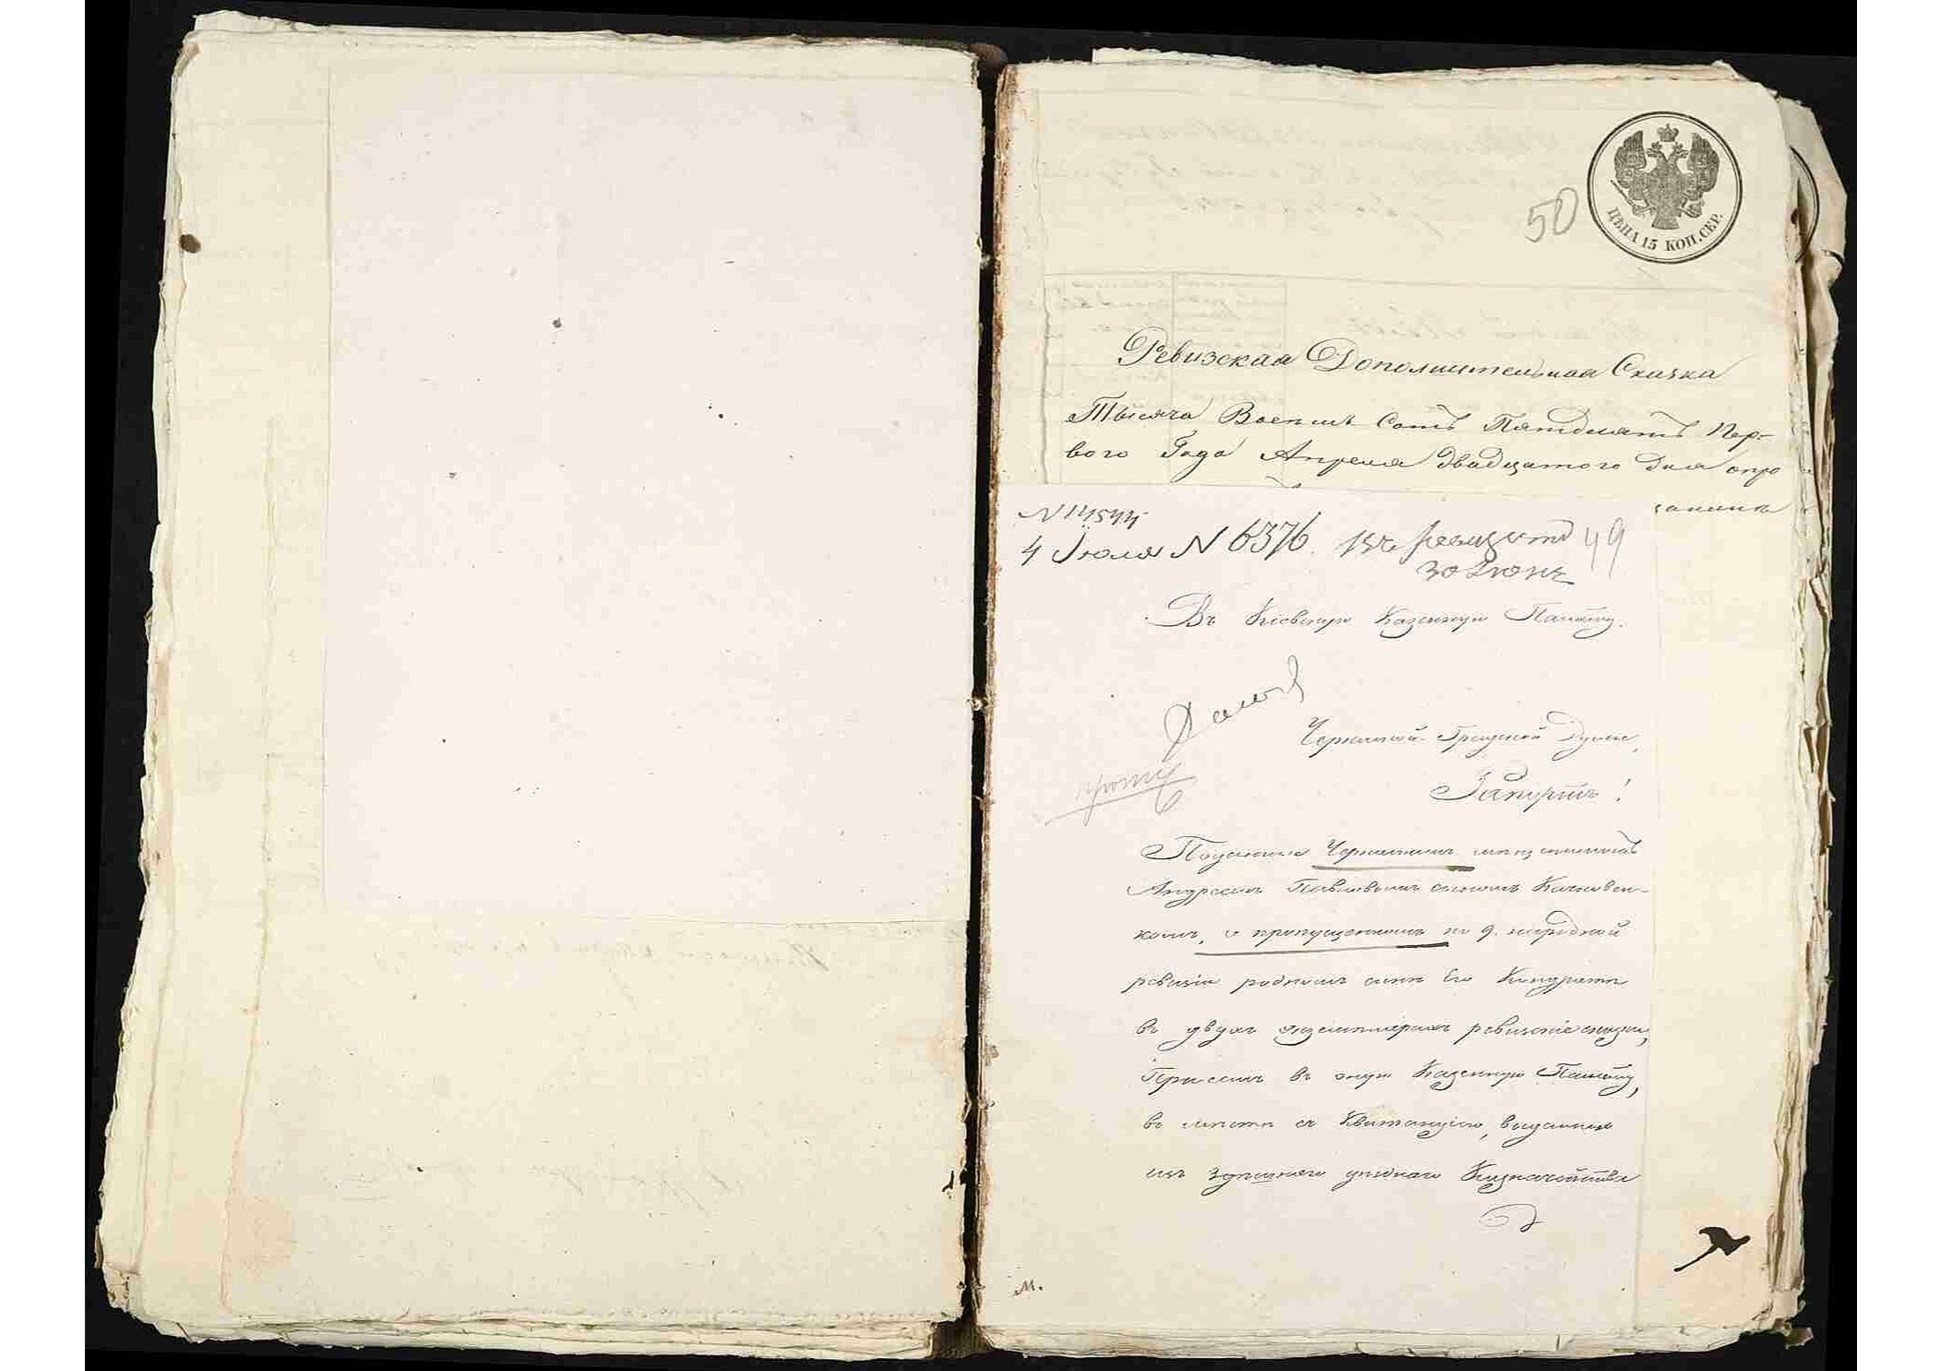 50
ЦѢНА 15 КОП. СЕР.
Ревизская Дополнительная Сказка
Тысяча Восемь Сотъ Пятдесятъ Пер-
вого Года Апреля двадцатого дня о
N 14544
4 Июля N 6376. 49
30 Июня
Въ Кіевскую Казенную Палату.
Черкаской Градской Думы,
Рапортъ!
Поданные Черкаскимъ мещаниномъ
Андреемъ Павловымъ сыномъ Качковск-
комъ, о пропущенномъ по 9. народной
ревизіи родномъ сыне его Кондрате
въ двухъ экземплярахъ ревизкіе сказки,
въ оную Казенную Палату,
въ месте съ Квитанціею, выданною
изъ здешнего уезднаго Казначейства
м.